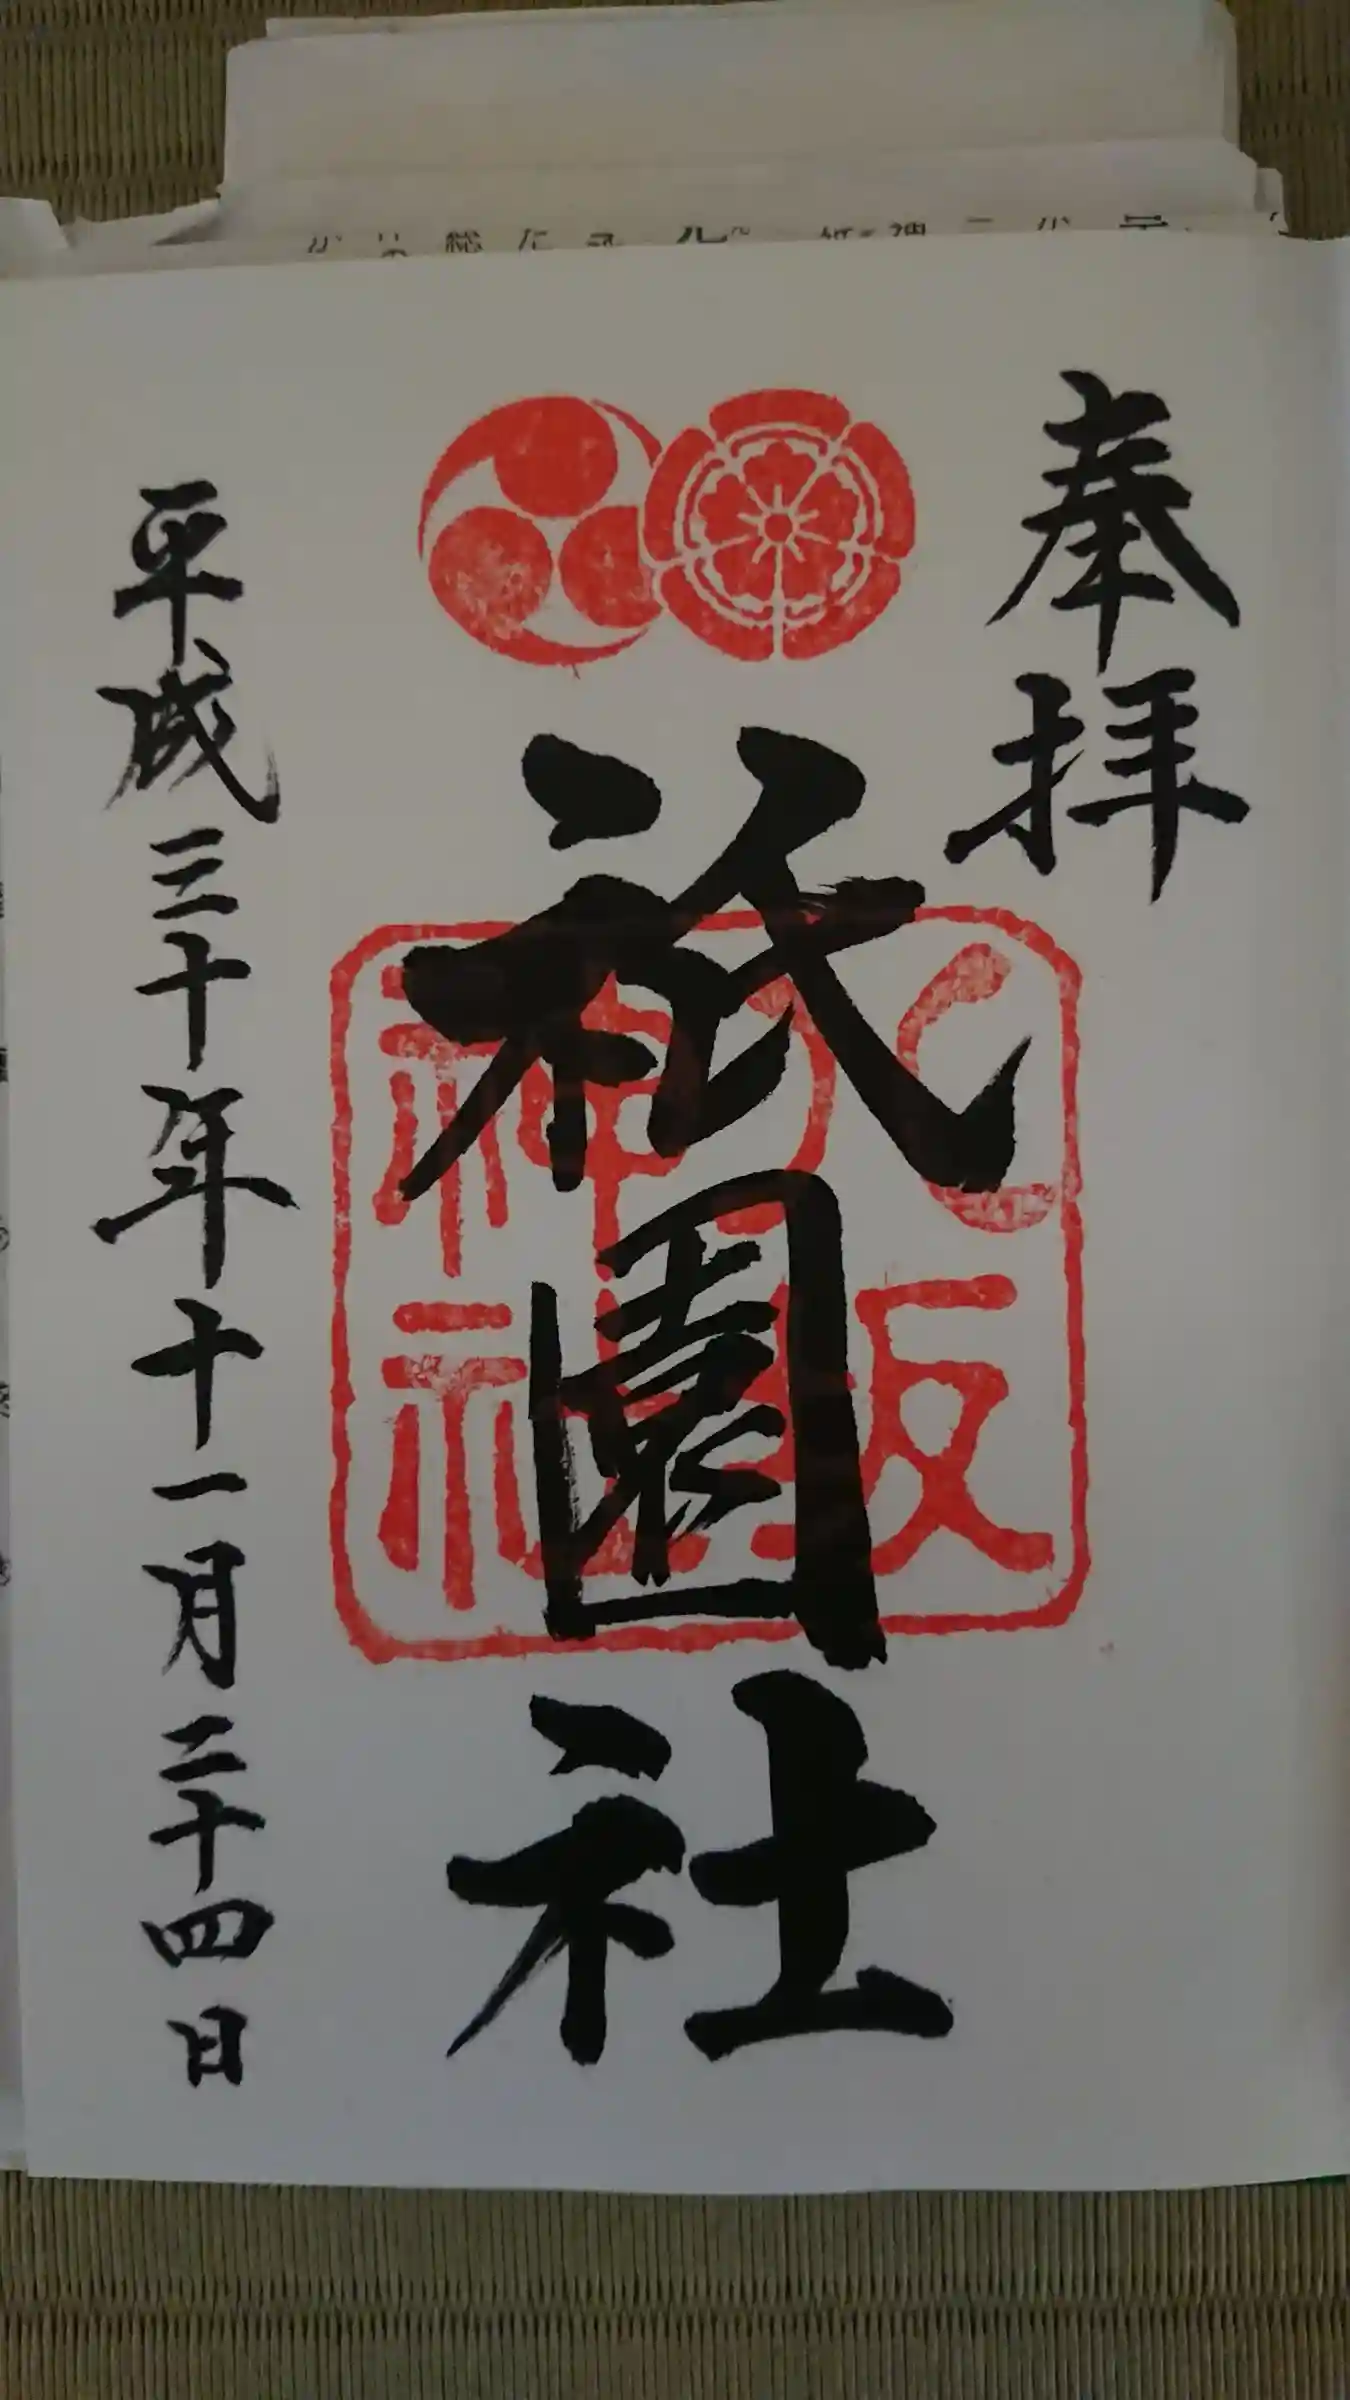 奉拝
祇園社
八坂神社
平成三十年十一月二十四日